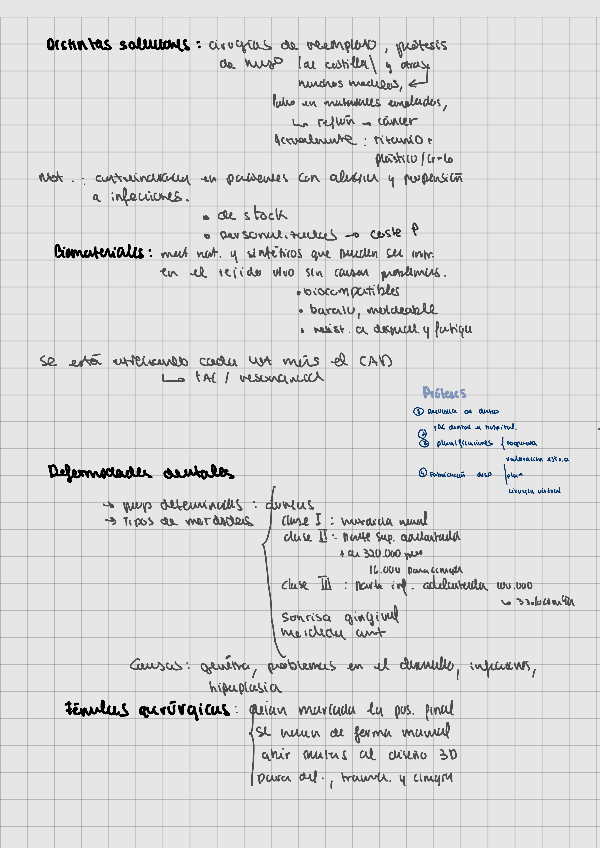 Distintas soluciones: cirugías de reemplazo, prótesis
de hueso (de costilla) y otras
muchos modelos,
en materiales
cáncer
Actualmente: titanio +
plástico/
Not.: contraindicada en pacientes con alergias y propensión
a infecciones.
• de stock
• personalizadas → coste P
Biomateriales: mat nat. y sintéticos que pueden ser intr.
en el tejido vivo sin causar problemas.
• biocompatibles
• barato, moldeable
• resist. a desgaste y fatiga
se está utilizando cada vez más el CAD
↳ TAC / resonancias
Prótesis
① de datos
② TAC dental u hospital.
③ planificaciones
valoración
④ Fabricación plan
cirugía virtual
Deformidades dentales
→ deformidades:
→ Tipos de mordedas
clase I: mordida
clase II: parte sup. adelantada
+ de 320.000
16.000 para cirugía
clase III: parte inf. adelantada 100.000
↳ 33.000
sonrisa gingival
mordida ant
Causas: genética, problemas en el desarrollo, infecciones,
hipoplasia
Férulas quirúrgicas: dejan marcada la pos. final
se hacen de forma manual
al diseño 3D
para y cirugía